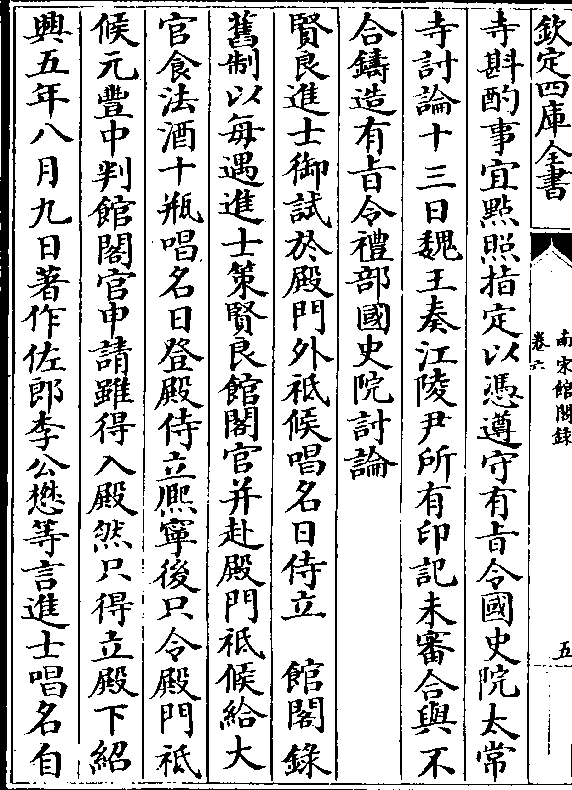 欽定四庫全書
南宋館閣錄
卷六
五
寺斟酌事宜㸃照指定以憑遵守有旨令國史院太常
寺討論十三日魏王奏江陵尹所有印記未審合與不
合鑄造有旨令禮部國史院討論
賢良進士御試於殿門外祗候唱名日侍立　館閣錄
舊制以每遇進士策賢良館閣官并赴殿門祗候給大
官食法酒十瓶唱名日登殿侍立熈寧後只令殿門祗
候元豐中判館閣官申請雖得入殿然只得立殿下紹
興五年八月九日著作佐郎李公懋等言進士唱名自